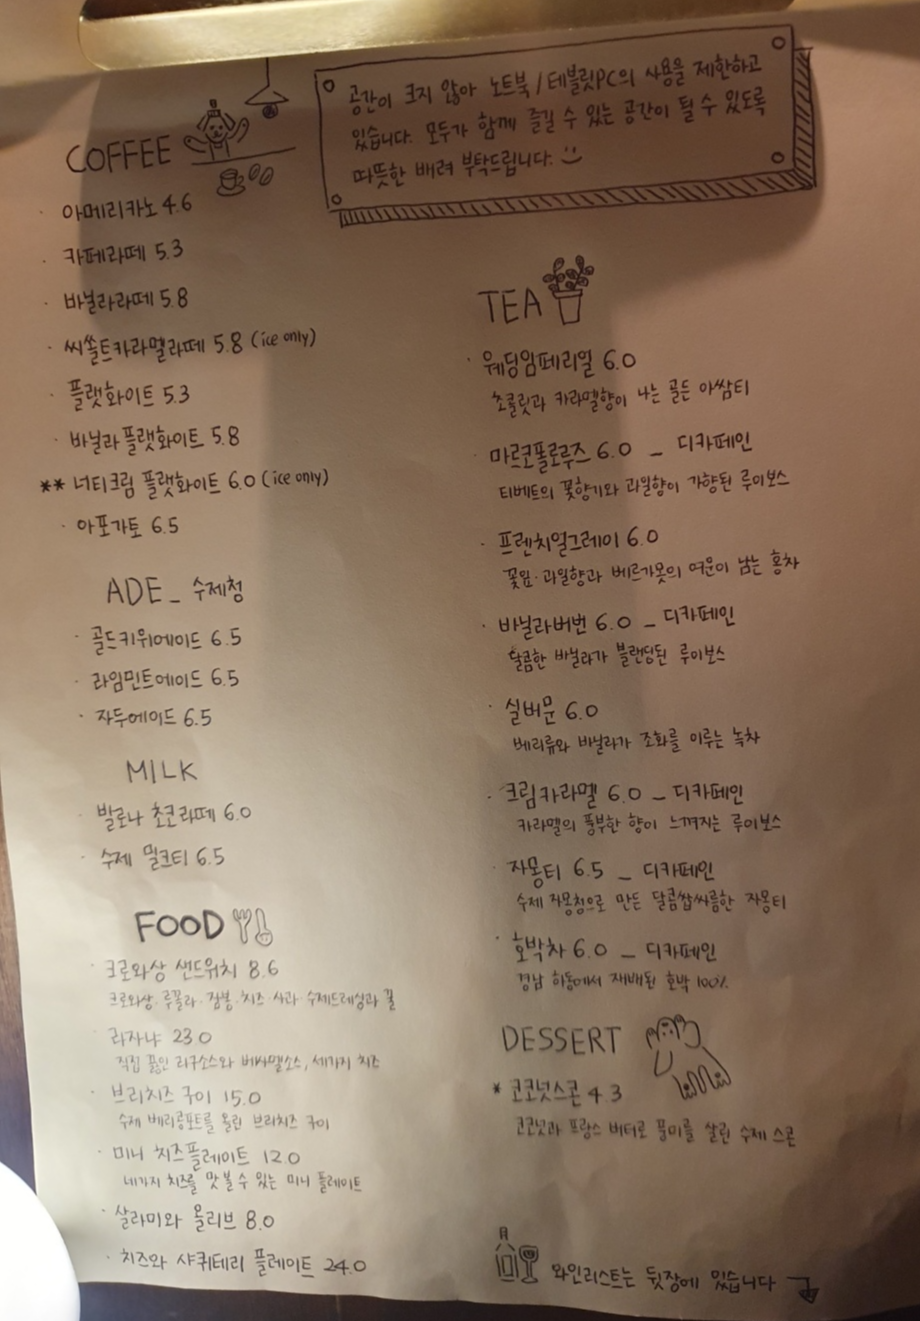 공간이 크지 않아 노트북/테블릿PC의 사용을 제한하고
있습니다. 모두가 함께 즐길 수 있는 공간이 될 수 있도록
따뜻한 배려 부탁드립니다.
COFFEE
· 아메리카노 4.6
· 카페라떼 5.3
· 바닐라라떼 5.8
· 씨쏠트카라멜라떼 5.8 (ice only)
· 플랫화이트 5.3
· 바닐라플랫화이트 5.8
** 너티크림 플랫화이트 6.0 (ice only)
· 아포가토 6.5
ADE _ 수제청
· 골드키위에이드 6.5
· 라임민트에이드 6.5
· 자두에이드 6.5
MILK
· 발로나 초코라떼 6.0
· 수제 밀크티 6.5
FOOD
· 크로와상 샌드위치 8.6
크로와상·루꼴라·잠봉·치즈·사과·수제드레싱과 꿀
· 라자냐 23.0
직접 끓인 라구소스와 베샤멜소스, 세가지 치즈
· 브리치즈 구이 15.0
수제 베리콩포트를 올린 브리치즈 구이
· 미니 치즈플레이트 12.0
네가지 치즈를 맛볼 수 있는 미니 플레이트
· 살라미와 올리브 8.0
· 치즈와 샤퀴테리 플레이트 24.0
TEA
· 웨딩임페리얼 6.0
초콜릿과 카라멜향이 나는 골든 아쌈티
· 마르코폴로루즈 6.0 _ 디카페인
티베트의 꽃향기와 과일향이 가향된 루이보스
· 프렌치얼그레이 6.0
꽃잎·과일향과 베르가못의 여운이 남는 홍차
· 바닐라버번 6.0 _ 디카페인
달콤한 바닐라가 블랜딩된 루이보스
· 실버문 6.0
베리류와 바닐라가 조화를 이루는 녹차
· 크림카라멜 6.0 _ 디카페인
카라멜의 풍부한 향이 느껴지는 루이보스
· 자몽티 6.5 _ 디카페인
수제 자몽청으로 만든 달콤쌉싸름한 자몽티
· 호박차 6.0 _ 디카페인
경남 하동에서 재배된 호박 100%
DESSERT
* 코코넛스콘 4.3
코코넛과 프랑스 버터로 풍미를 살린 수제 스콘
와인리스트는 뒷장에 있습니다